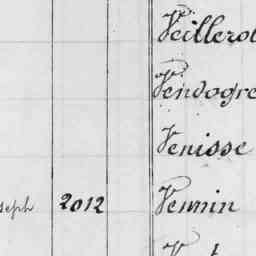 Veillerot
Vendogre
Venisse
seph 2012 Vennin